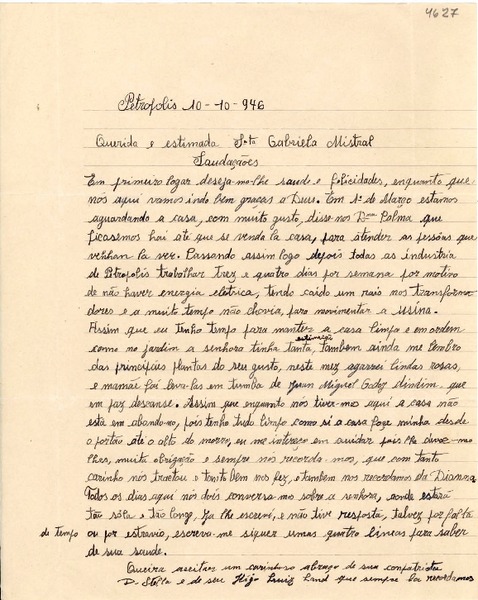 4627
Petrópolis 10-10-946
Querida e estimada Srta Gabriela Mistral
Saudações
Em primeiro logar deseja-mo-lhe saude e felicidades, enquanto que
nós aqui vamos indo bem graças a Deus. Em 1º de Março estamos
aguardando a casa, com muito gusto, disse-nos Dna Palma que
ficasemos hai até que se venda la casa, para atender as pessôas que
venhan la ver. Passando assim logo depois todas as industria
de Petrópolis trabalhar trez e quatro dias por semana por motivo
de não haver energia elétrica, tendo caido um raio nos transforma-
dores e a muito tempo não chovia, para movimentar a usina.
Assim que eu tenho tempo para manter a casa limpo e em ordem
estimação
como no jardim a senhora tinha tanta, tambem ainda me lembro
das principais plantas do seu gusto, neste mez agarrei lindas rosas,
e mamãe foi leva-las em tumba de Juan Miguel Godoy dindim, que
em paz descanse. Assim que enquanto nós tiver-mos aqui a casa não
está em abando-no, pois tenho tudo limpo como si a casa foze minha desde
o portão até o alto do morro, eu me intereso em cuidar pois lhe deve-mo-
lhes, muita obrigação e sempre nós recorda-mos, que com tanto
carinho nós tratou e tanto bem nos fez, e tambem nos recordamos da Dianora
Todos os dias aqui nós dois conversa-mo sobre a senhora, aonde estará
tão sóla e tão longe. Ja lhe escreví, e não tive resposta, talvez por falta
de tempo ou por estravio, escreva-me siquer umas quatro lineas para saber
de sua saude.
Queira aceitar um carinhoso abraço de sua compatriota
D. Stella e de seu Hijo Luiz Land que sempre la recordamos